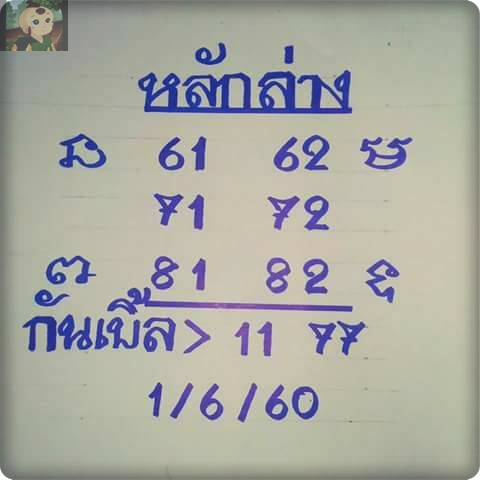 หลักล่าง
61 62
71 72
81 82
กันเบิ้ล > 11 77
1/6/60